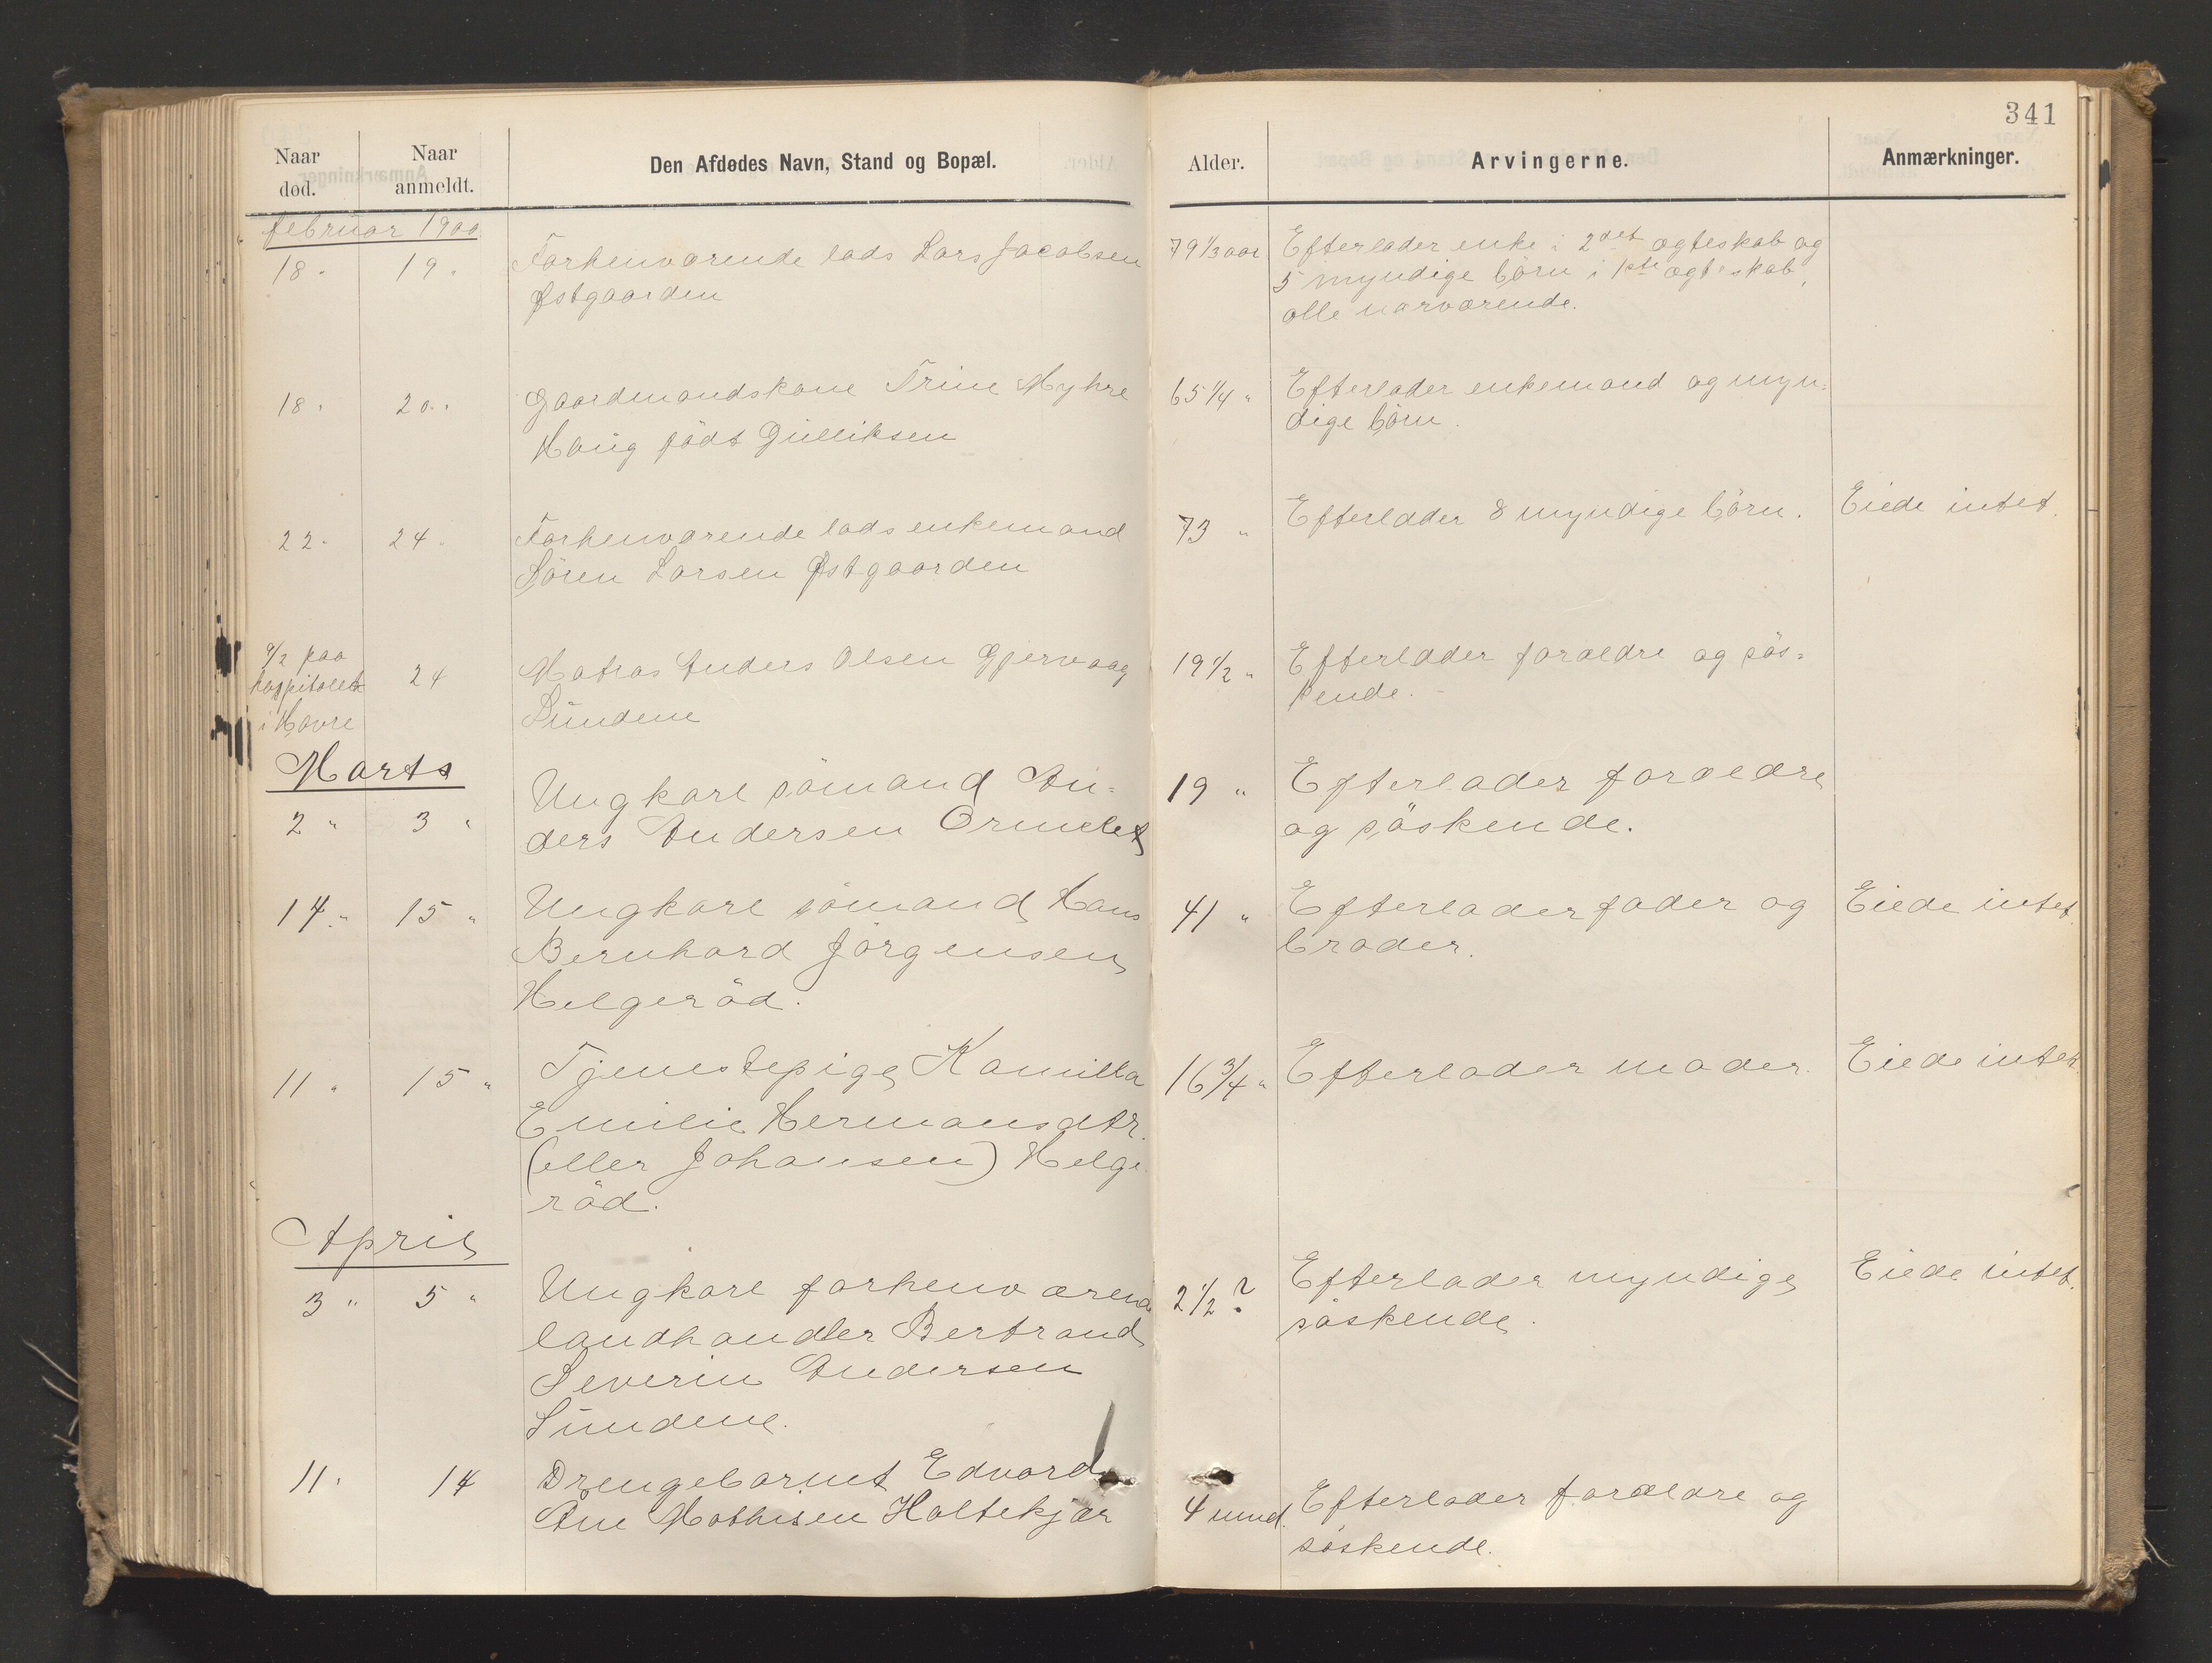 341
Naar død.
Naar anmeldt.
Den Afdødes Navn, Stand og Bopæl.
Alder.
Arvingerne.
Anmærkninger.
februar 1900
18. 19. Forhenværende lods Lars Jacobsen
Østgaarden
79 1/3 aar
Efterlader enke i 2det ægteskab og
5 myndige börn i 1ste ægteskab,
alle nærværende.
18. 20. Gaardmandskone Trine Myhre
Haug född Gulliksen
65 1/4 "
Efterlader enkemand og myn-
dige börn.
22. 24. Forhenværende lods enkemand
Sören Larsen Østgaarden
73 "
Efterlader 8 myndige börn.
Eiede intet.
9/2 paa
hospitalet
i Havre
24
Matros Anders Olsen Gjervaag
Sundene
19 1/2 "
Efterlader forældre og sös-
kende.
Marts
2 " 3 " Ungkarl sömand An-
ders Andersen Ormelet
19 "
Efterlader forældre
og söskende.
14. " 15 " Ungkarl sömand Hans
Bernhard Jörgensen
Helgeröd.
41 "
Efterlader fader og
broder.
Eiede intet.
11 " 15 " Tjenestepige Kamilla
Emilie Hermansdtr.
(eller Johansen) Helge
röd.
16 3/4 "
Efterlader moder.
Eiede intet.
April
3 " 5 " Ungkarl forhenværend
landhandler Bertrand
Severin Andersen
Sundene.
2 1/2 ?
Efterlader myndige
söskende.
Eiede intet.
11. 14 Drengebarnet Edvard
Mathisen Holtekjær
4 mnd.
Efterlader forældre og
söskende.